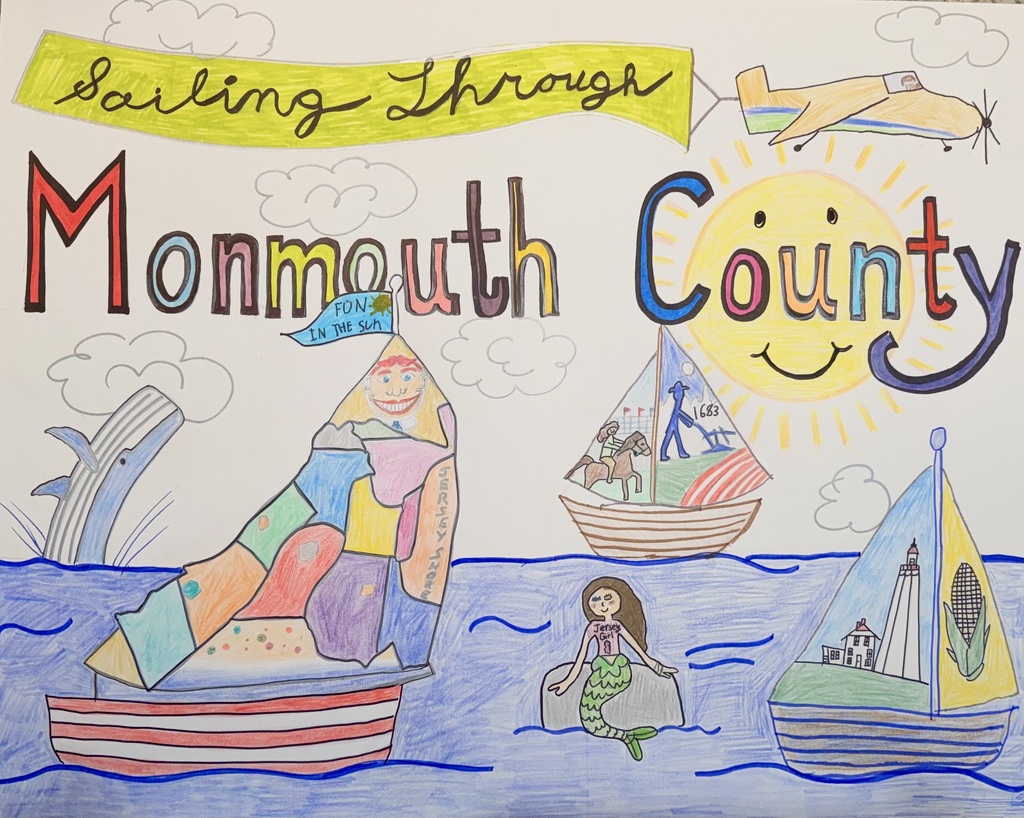 Sailing Through
Monmouth County
FUN
IN THE SUN
1683
JERSEY SHORE
Jersey
Girl